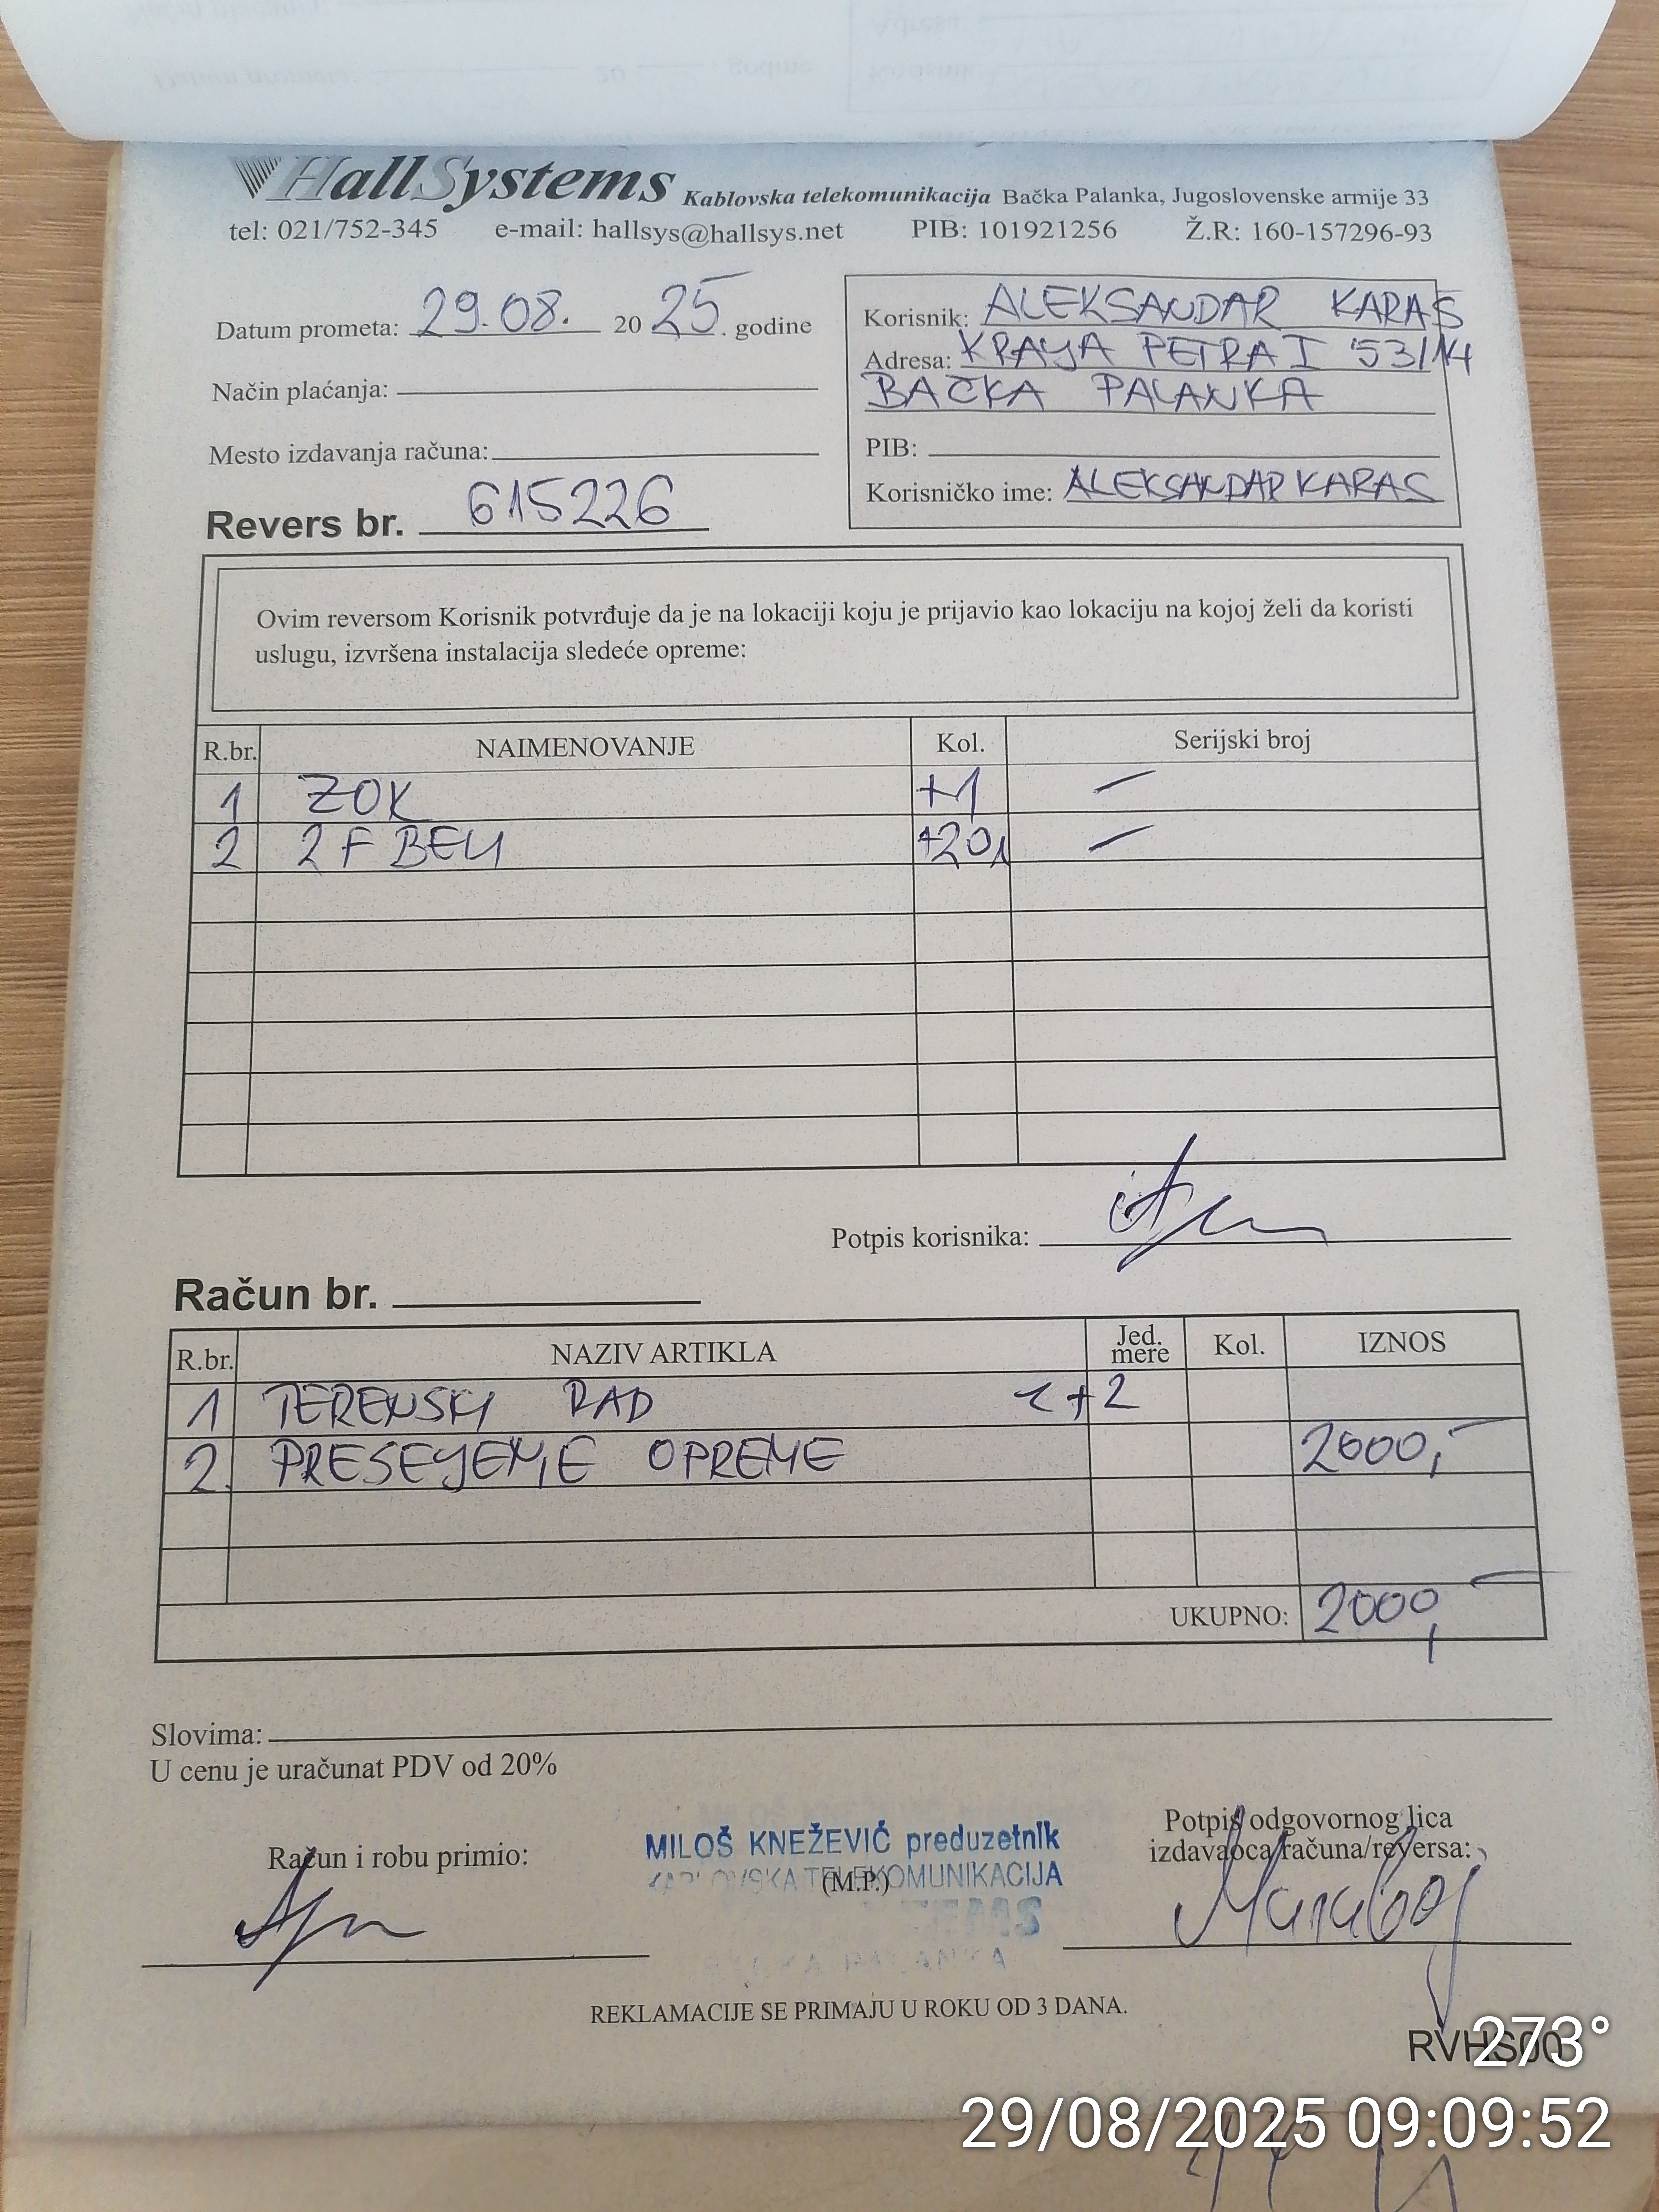 HallSystems Kablovska telekomunikacija Bačka Palanka, Jugoslovenske armije 33
tel: 021/752-345 e-mail: hallsys@hallsys.net PIB: 101921256 Ž.R: 160-157296-93
Datum prometa: 29.08. 2025. godine
Način plaćanja:
Mesto izdavanja računa:
Revers br. 615226
Korisnik: ALEKSANDAR KARAŠ
Adresa: KRALJA PETRA I 53/14
BAČKA PALANKA
PIB:
Korisničko ime: ALEKSANDAR KARAS
Ovim reversom Korisnik potvrđuje da je na lokaciji koju je prijavio kao lokaciju na kojoj želi da koristi
uslugu, izvršena instalacija sledeće opreme:
R.br. NAIMENOVANJE Kol. Serijski broj
1 ZOK +1 –
2 2F BELI +20 –
Potpis korisnika:
Račun br.
R.br. NAZIV ARTIKLA Jed. mere Kol. IZNOS
1 TERENSKI RAD 1+2
2. PRESELJENJE OPREME 2000,-
UKUPNO: 2000,-
Slovima:
U cenu je uračunat PDV od 20%
Račun i robu primio:
MILOŠ KNEŽEVIĆ preduzetnik
KABLOVSKA TELEKOMUNIKACIJA
(M.P.)
Potpis odgovornog lica
izdavaoca računa/reversa:
REKLAMACIJE SE PRIMAJU U ROKU OD 3 DANA.
273°
29/08/2025 09:09:52